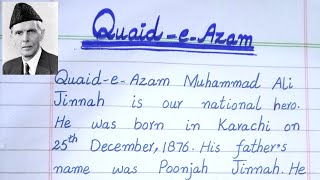 Quaid-e-Azam
Quaid-e-Azam Muhammad Ali
Jinnah is our national hero.
He was born in Karachi on
25th December, 1876. His father's
name was Poonjah Jinnah. He